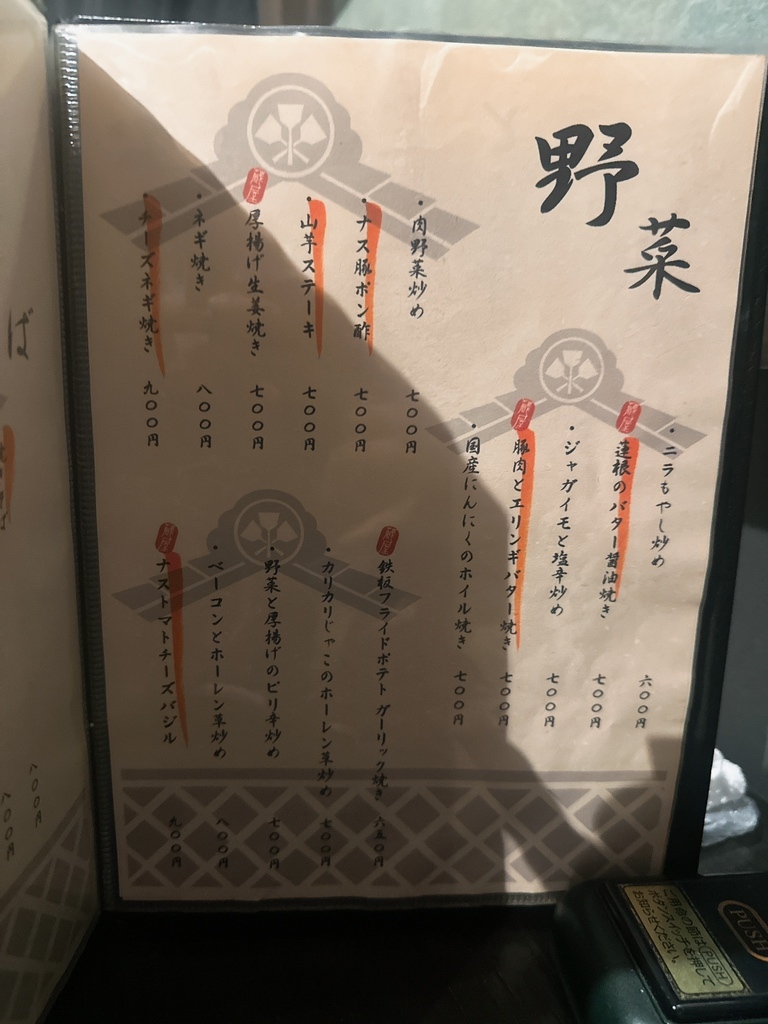 野菜
・ニラもやし炒め 六〇〇円
蓮根のバター醤油焼き 七〇〇円
・ジャガイモと塩辛炒め 七〇〇円
豚肉とエリンギバター焼き 七〇〇円
・国産にんにくのホイル焼き 七〇〇円
・肉野菜炒め 七〇〇円
・ナス豚ポン酢 七〇〇円
・山芋ステーキ 七〇〇円
蔵屋 厚揚げ生姜焼き 七〇〇円
・ネギ焼き 八〇〇円
・チーズネギ焼き 九〇〇円
鉄板フライドポテト ガーリック焼き 六五〇円
・カリカリじゃこのホーレン草炒め 七〇〇円
・野菜と厚揚げのピリ辛炒め 七〇〇円
・ベーコンとホーレン草炒め 八〇〇円
ナストマトチーズバジル 九〇〇円
ば
八〇〇円
八〇〇円
ご用命の節はPUSH
ボタンスイッチを押して
お知らせください。
PUSH